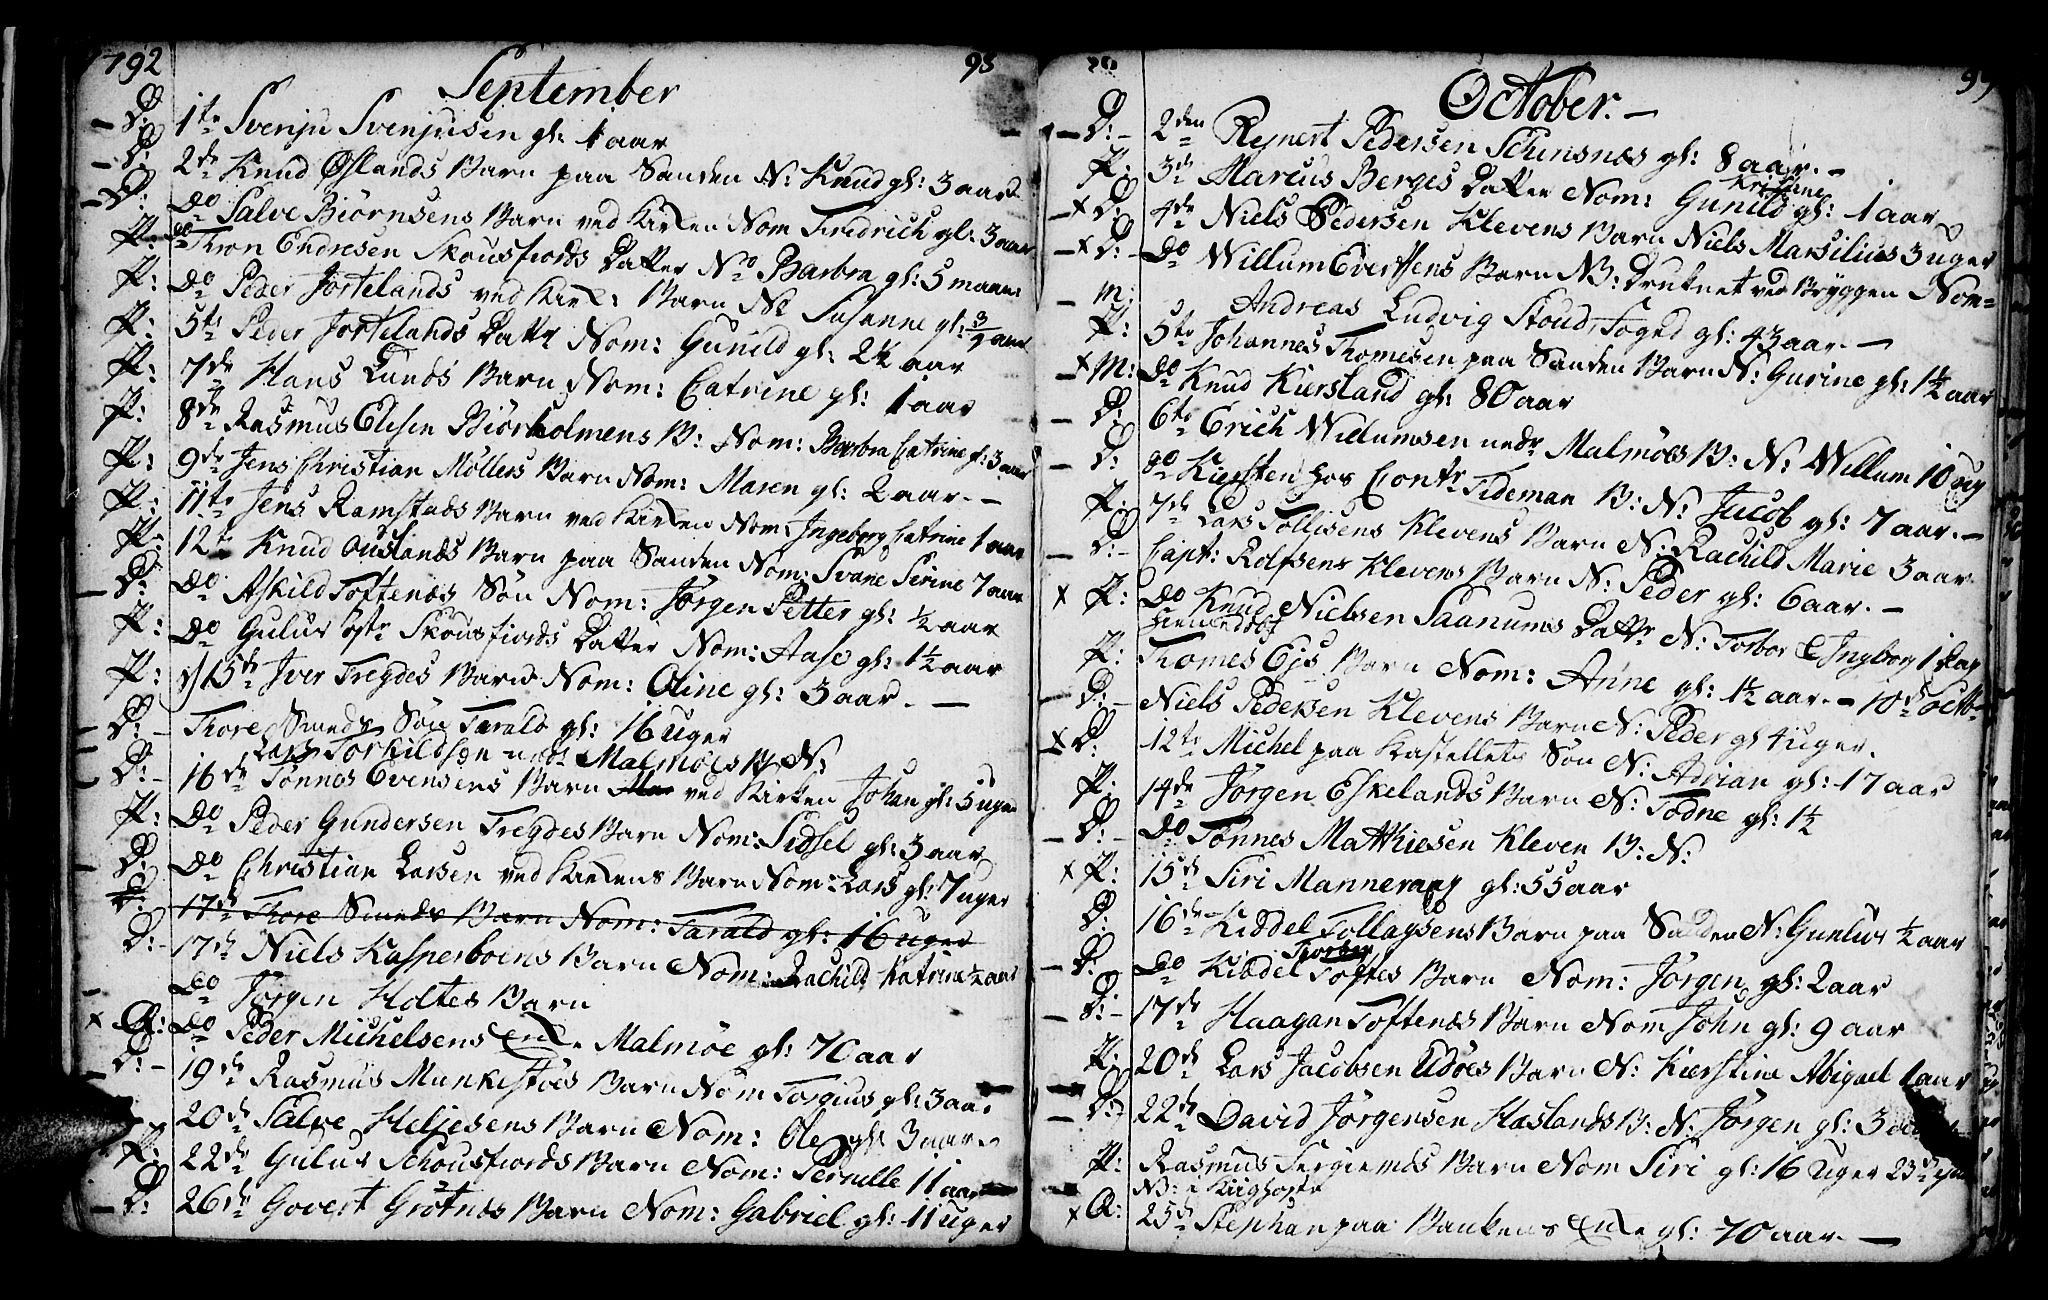 1792 98
September
D: 1te Svenju Svenjusen gl: 1 aar
D: 2de Knud Øslands Barn paa Sanden N: Knud gl: 3 aar
D: do Salve Biörnsens Barn ved Kirken Nom Fredrich gl: 3 aar
P: do Tron Endresen Skousfiords Datter No Barbra gl: 5 maan:
P: do Peder Jortelands ved Kirk: Barn No Susanne gl: 3/4 aar
P: 5te Peder Jortelands Dattr Nom: Gunild gl: 2½ aar
P: 7de Hans Lunds Barn Nom: Catrine gl: 1 aar
P: 8de Rasmus Elisen Biörholmens B: Nom: Barbra Catrine gl: 3 aar
P: 9de Jens Christian Möllers Barn Nom: Maren gl: 2 aar. -
P: 11te Jens Ramstads Barn ved Kirken Nom: Ingeborg Catrine 1 aar
P: 12te Knud Ouslands Barn paa Sanden Nom: Svane Serine 7 aar
D: do Askild Toftenæs Sön Nom: Jørgen Petter gl: ½ aar
P: do Gulus Skousfiords Datter Nom: Aase gl: 1½ aar
P: 15de Iver Tregdes Barn Nom: Oline gl: 3 aar. -
D: Thore Smeds Sön Tarald gl: 16 Uger
Lars Torkildsen Malmöes B: N:
D: 16de Tönnes Evensens Barn ved Kirken Johan gl: 5 uger
P: do Peder Gundersen Tregdes Barn Nom: Sidsel gl: 3 aar
D: do Christian Larsen ved Kirkens Barn Nom: Lars gl: 7 uger
17de Thore Smeds Barn Nom: Tarald gl: 16 uger
D: 17de Niels Kasperboens Barn Nom: Rachild Katrine ½ aar
do Jörgen Holtes Barn
x Q: do Peder Michelsens Enke Malmöe gl: 70 aar
D: 19de Rasmus Munkestöes Barn Nom Torgius gl: 3 aar
20de Salve Heljesens Barn Nom: Ole gl: 3 aar
P: 22de Gulus Schousfiords Barn Nom: Pernille 11 aar
D: 26de Govert Grötnæs Barn Nom: Gabriel gl: 11 Uger
99
October. -
D: 2den Reinert Pedersen Schinsnæs gl: 8 aar. -
P: 3de Marcus Berges Datter Nom: Gunild Kristine gl: 1 aar
x D: 4de Niels Pedersen Klevens Barn Niels Marsilius 3 uger
x D: do Willum Evertsens Barn NB: Druknet ved Bryggen Nom=
M: Andreas Ludvig Stoud, Fogd gl: 43 aar. -
P: 5te Johannes Thomesen paa Sanden Barn N: Gurine gl: 1½ aar
x M: do Knud Kiersland gl: 80 aar
D: 6te Erich Willumsen nedr Malmöes B: N: Willum 10 ug
D: do Kiersten hos Contr Tideman B: N: Jacob gl: 7 aar. -
P: 7de Lars Tollisens Klevens Barn N: Rachild Marie 3 aar
D: Capt: Rolfsens Klevens Barn N: Peder gl: 6 aar. -
x P: do Knud Nielsen Saanums Dattr N: Torbor & Ingborg 1 Dag
P: Thomes Ejs Barn Nom: Anne gl: 1½ aar. - 10de Octb
D: Niels Pedersen Klevens Barn N: Peder gl 4 uger.
x D: 12te Michel paa Kastellets Sön N: Adrian gl: 17 aar
P: 14de Jørgen Eskelands Barn N: Todne gl: 1½
D: do Tønnes Matthiesen Kleven B: N:
x P: 15de Siri Mannerang gl: 55 aar
D: 16de Kiddel Tollagsens Barn paa Sanden N: Gunlus ½ aar
D: do Kiddel Toftes Barn Nom: Jørgen gl: 2 aar
D: 17de Haagan Toftenæs Barn Nom John gl: 9 aar
P: 20de Lars Jacobsen Udöes Barn N: Kierstine Abigael 1 aar
D: 22de David Jørgensen Haslands B: N: Jørgen gl: 3
P: Rasmus Barn Nom Siri gl: 16 Uger 23de
NB: i
x Q: 25de Stephan paa Bankens Enke gl: 70 aar. -